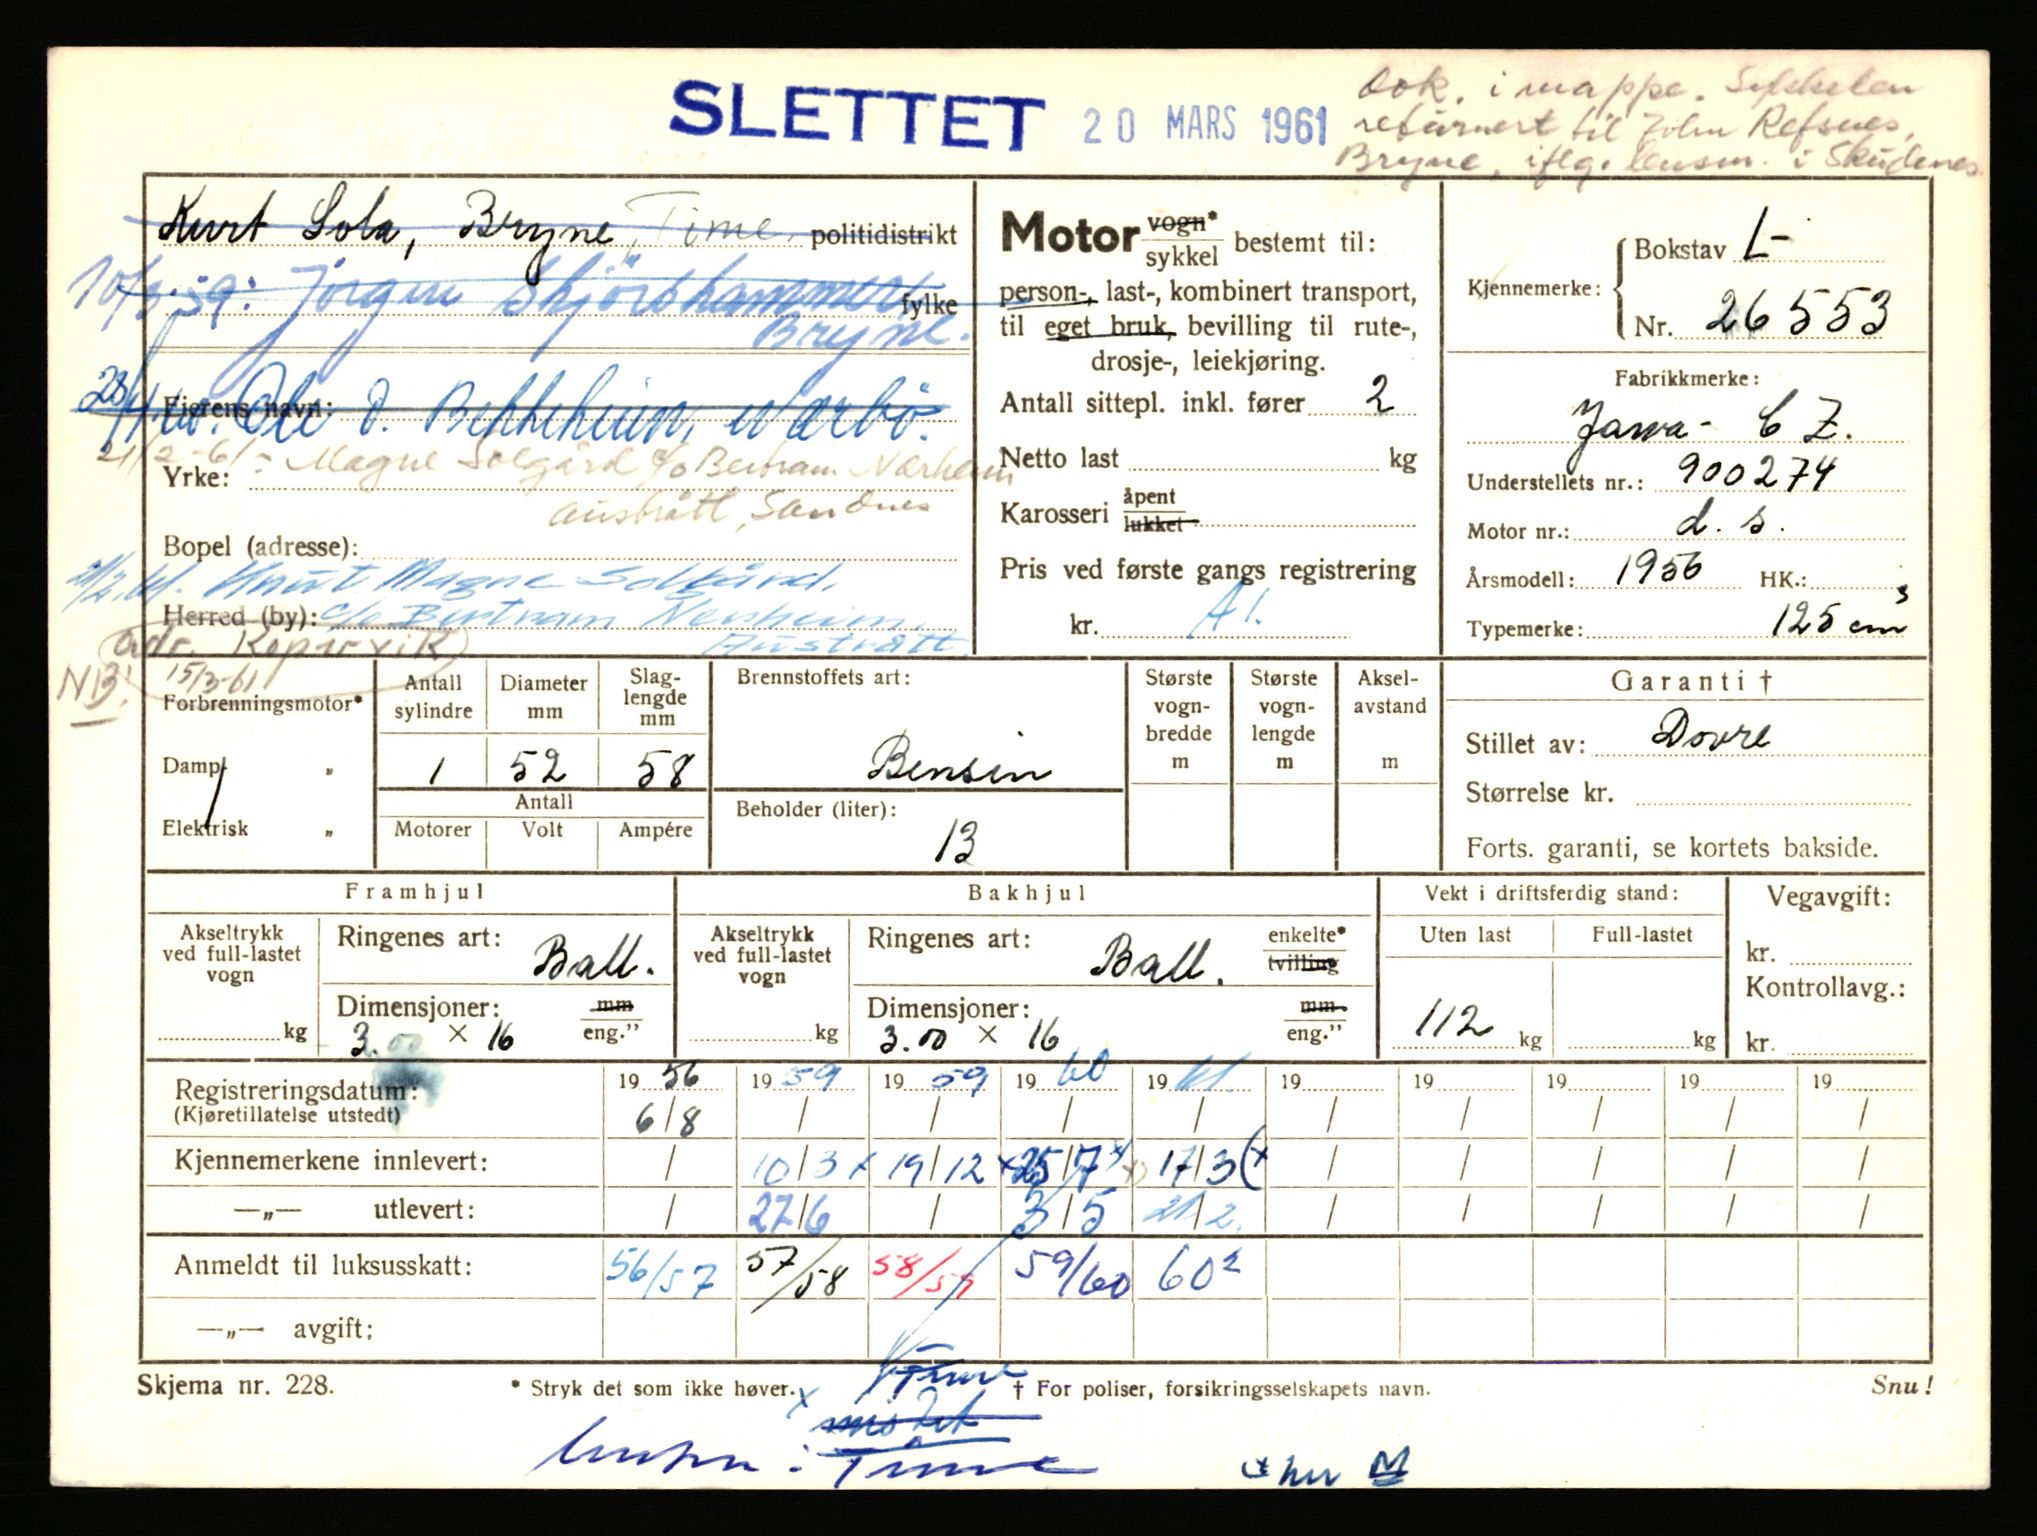 SLETTET 20 MARS 1961
Dok. i mappe. Sykkelen
returnert til John Refsnes,
Bryne, iflg. lensm. i Skudenes
Kurt Sola, Bryne, Time. politidistrikt
10/3.59: Jørgen Skjørshammer fylke
Bryne.
Eierens navn: Ole O. Bekkeheim, Nærbø.
21/2-61:- Magne Solgård c/o Bertram Nærheim
Yrke:
Austrått, Sandnes
Bopel (adresse):
21/2.61. Knut Magne Solgård,
Herred (by): c/o Bertram Nersheim,
Austrått.
adr. Kopervik
NB! 15/3-61
Motor vogn*
sykkel bestemt til:
person-, last-, kombinert transport,
til eget bruk, bevilling til rute-,
drosje-, leiekjøring.
Antall sittepl. inkl. fører 2
Netto last kg
Karosseri åpent
lukket
Pris ved første gangs registrering
kr. A1.
Kjennemerke: Bokstav L-
Nr. 26553
Fabrikkmerke:
Jawa- CZ.
Understellets nr.: 900274
Motor nr.: d.s.
Årsmodell: 1956 HK.:
Typemerke: 125 cm³
Forbrenningsmotor*
Damp „
Elektrisk „
Antall sylindre Diameter mm Slaglengde mm
1 52 58
Antall
Motorer Volt Ampére
Brennstoffets art:
Bensin
Beholder (liter):
13
Største vognbredde m
Største vognlengde m
Akselavstand m
Garanti †
Stillet av: Dovre
Størrelse kr.
Forts. garanti, se kortets bakside.
Framhjul
Akseltrykk ved full-lastet vogn
kg
Ringenes art: Ball.
Dimensjoner: mm
3.00 × 16 eng.”
Bakhjul
Akseltrykk ved full-lastet vogn
kg
Ringenes art: Ball. enkelte*
tvilling
Dimensjoner: mm.
3.00 × 16 eng.”
Vekt i driftsferdig stand:
Uten last Full-lastet
112 kg kg
Vegavgift:
kr.
Kontrollavg.:
kr.
Registreringsdatum: 19 56 19 59 19 59 19 60 19 61 19 19 19 19 19
(Kjøretillatelse utstedt) 6/8 / / / / / / / / /
Kjennemerkene innlevert: / 10/3 x 19/12 x 25/7 x 17/3 (x / / / / /
—„— utlevert: / 27/6 / 3/5 21/2. / / / / /
Anmeldt til luksusskatt: 56/57 57/58 58/59 59/60 60²
—„— avgift:
Skjema nr. 228. * Stryk det som ikke høver. † For poliser, forsikringsselskapets navn. Snu!
Time
x mistet
i Time
x her